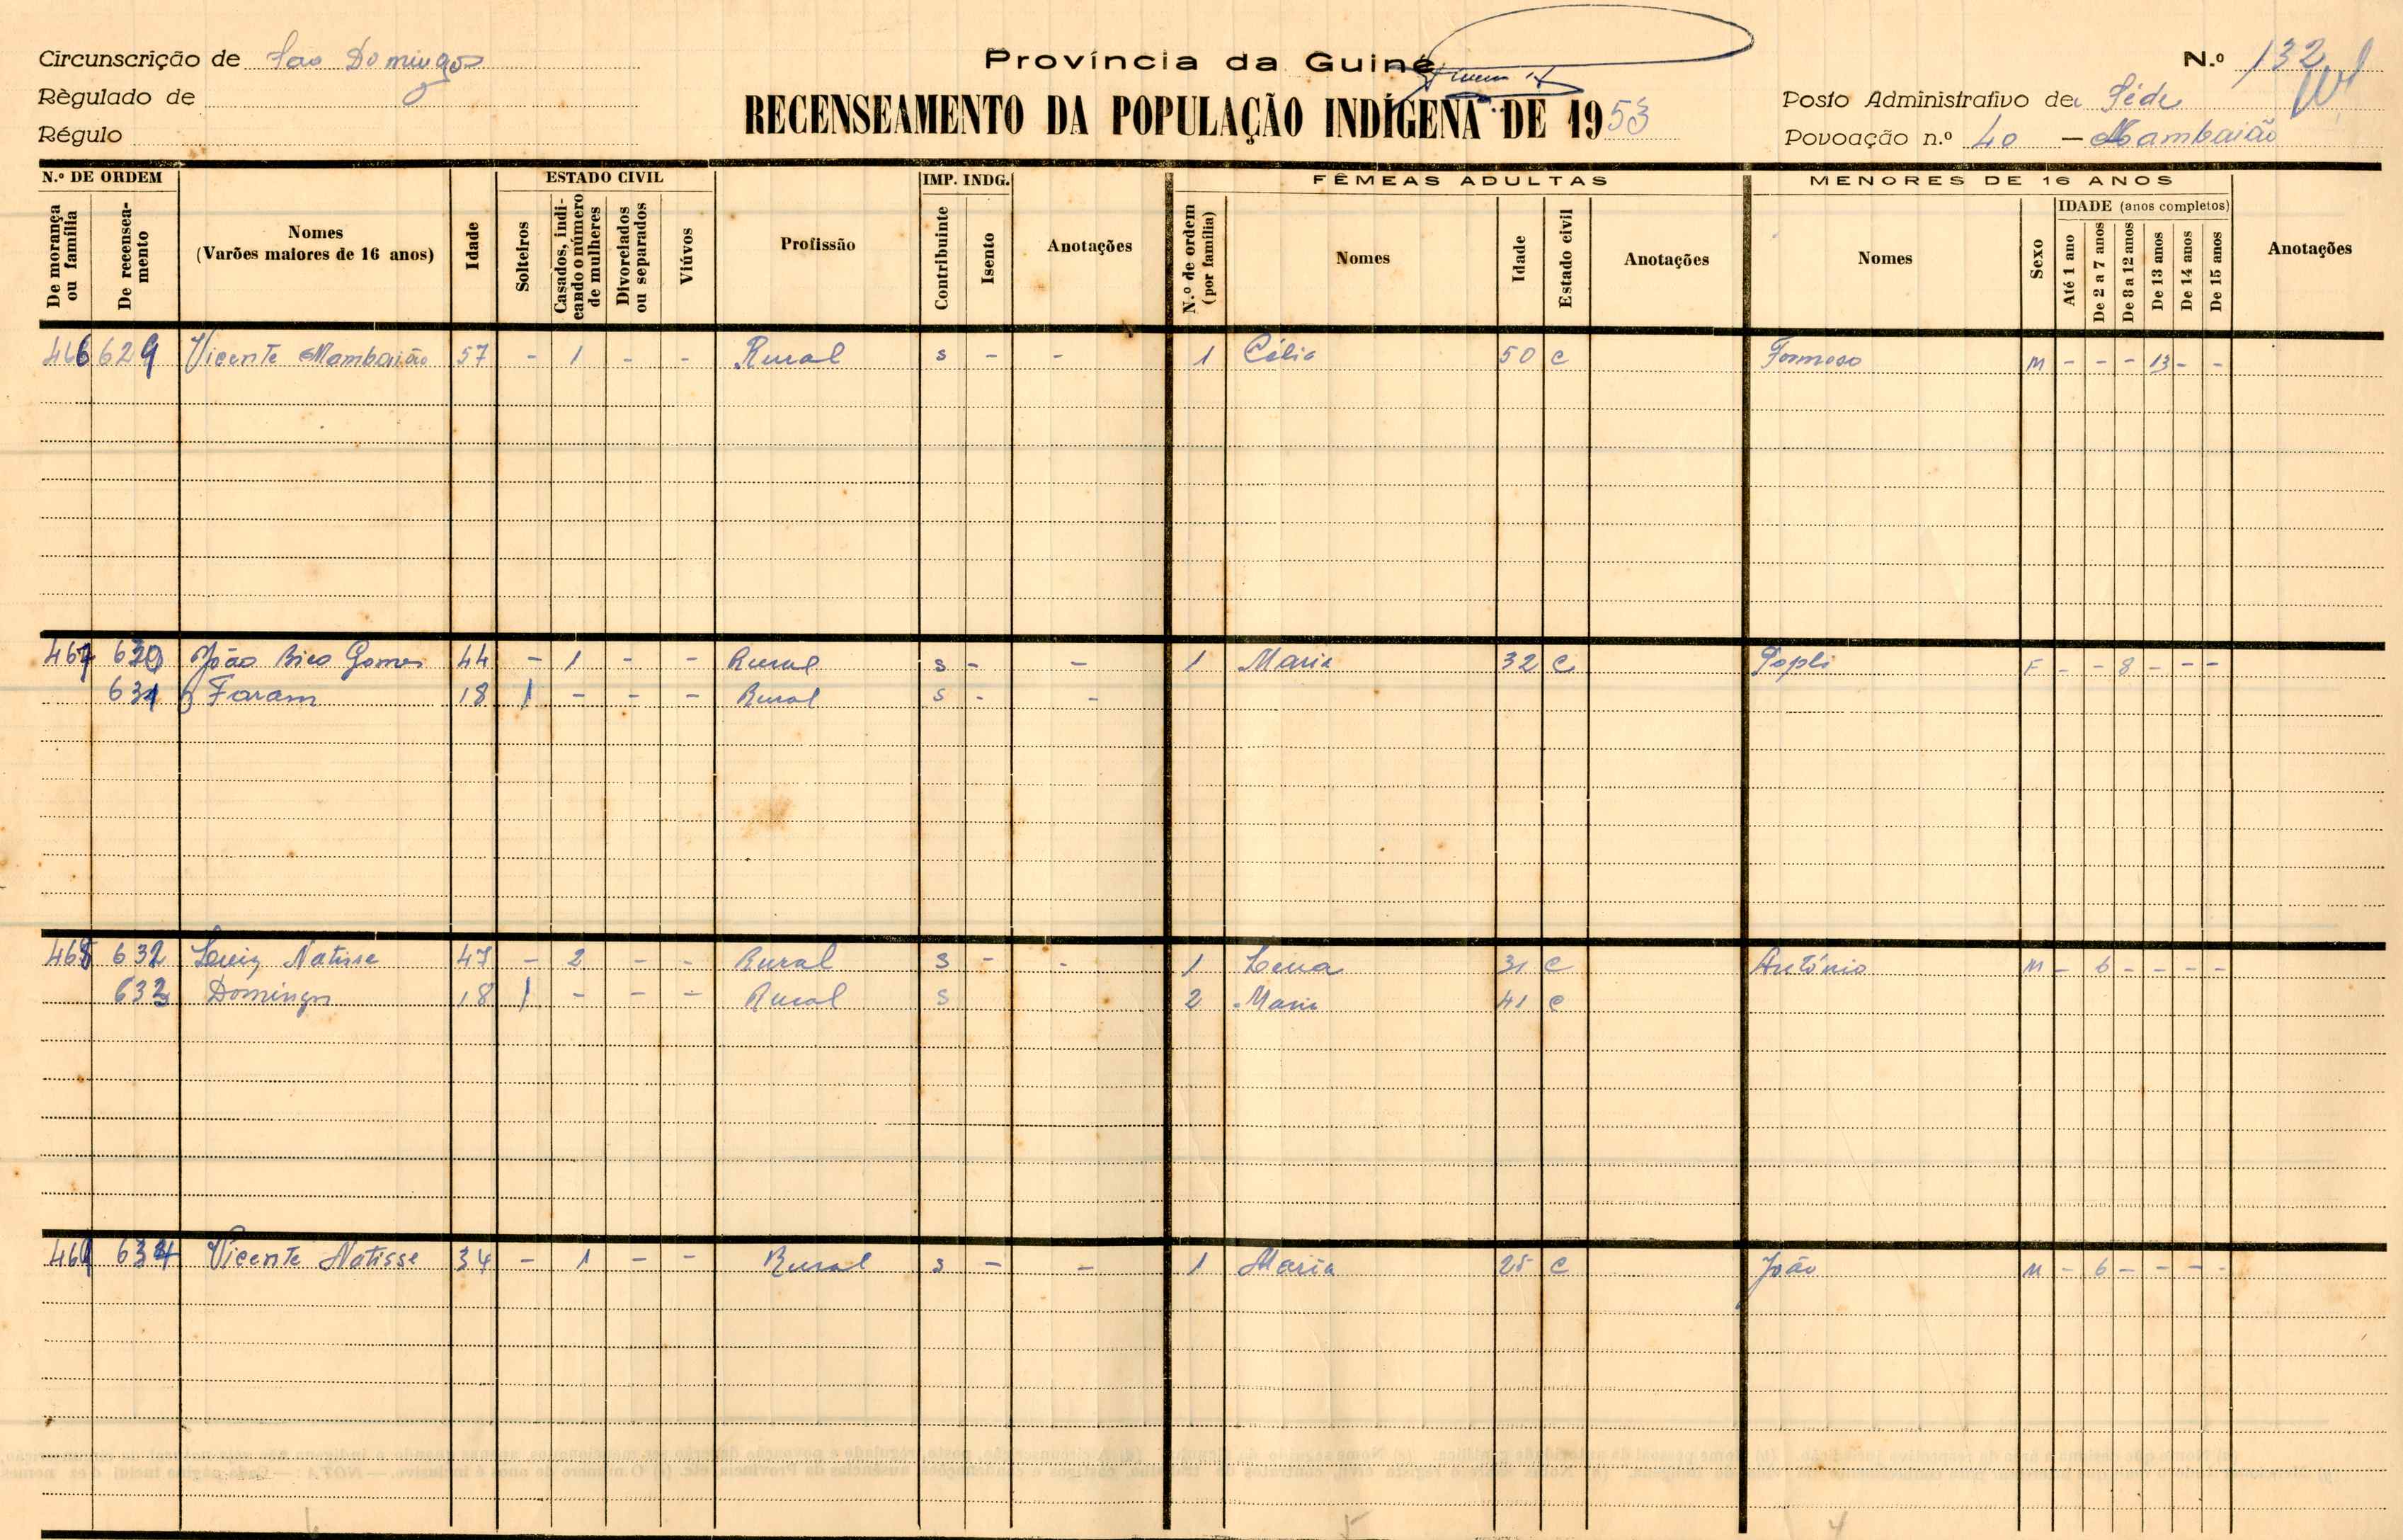 Circunscrição de Sao Domingos
Règulado de
Régulo
Província da Guiné
RECENSEAMENTO DA POPULAÇÃO INDÍGENA DE 1953
N.º 132
Posto Administrativo de Séde
Povoação n.º 40 — Mambaião
N.º DE ORDEM
De morança ou família
De recenseamento
Nomes
(Varões maiores de 16 anos)
Idade
ESTADO CIVIL
Solteiros
Casados, indicando o número de mulheres
Divorciados ou separados
Viúvos
Profissão
IMP. INDG.
Contribuinte
Isento
Anotações
FÊMEAS ADULTAS
N.º de ordem (por família)
Nomes
Idade
Estado civil
Anotações
MENORES DE 16 ANOS
Nomes
Sexo
IDADE (anos completos)
Até 1 ano
De 2 a 7 anos
De 8 a 12 anos
De 13 anos
De 14 anos
De 15 anos
Anotações
466 629 Vicente Mambaião 57 - 1 - - Rural s - - 1 Célia 50 c Formoso M - - - 13 - -
467 630 João Bico Gomes 44 - 1 - - Rural s - - 1 Maria 32 c Popli F - - 8 - - -
631 Faram 18 1 - - - Rural s - -
468 632 Luiz Natisse 47 - 2 - - Rural s - - 1 Lena 31 c António M - 6 - - - -
633 Domingos 18 1 - - - Rural s 2 Maria 41 c
469 634 Vicente Natisse 34 - 1 - - Rural s - - 1 Maria 25 c João M - 6 - - - -